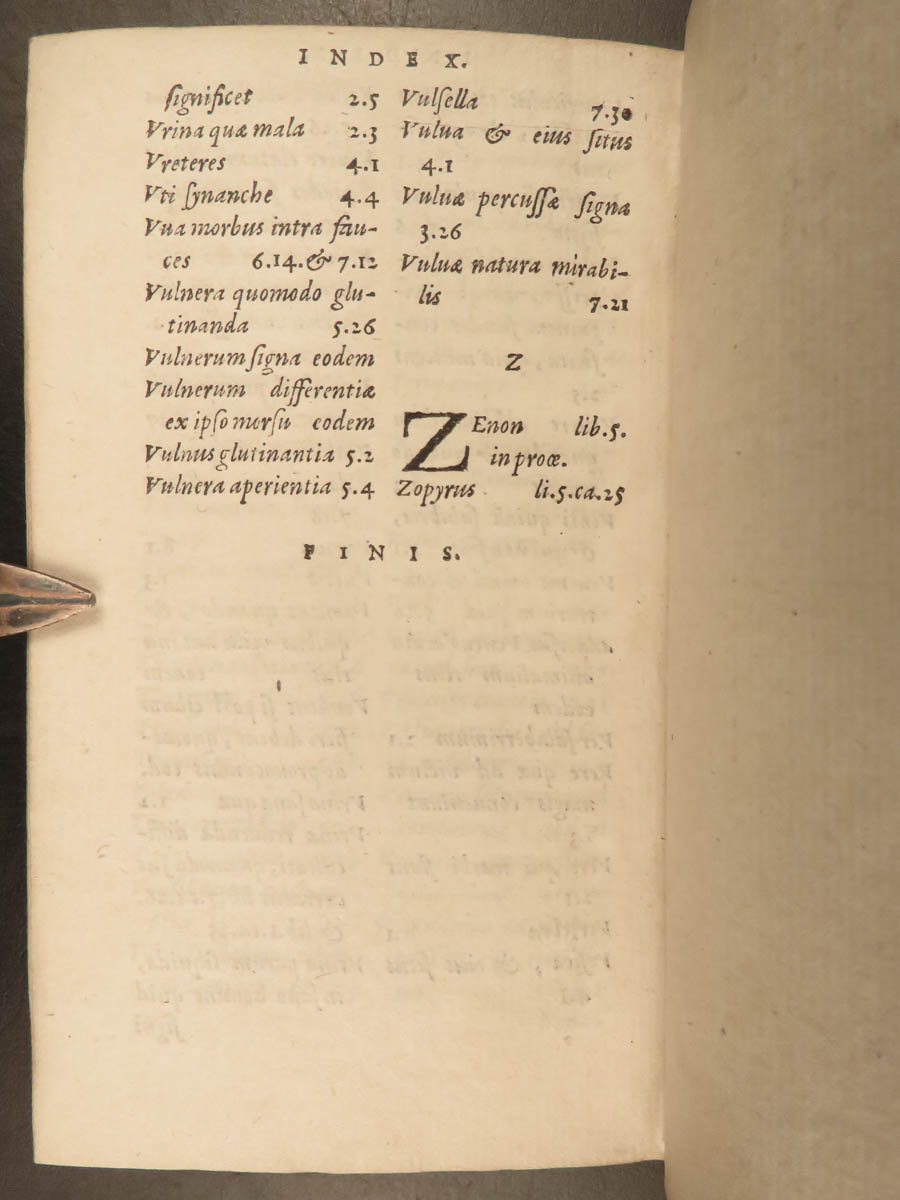 INDEX.
ſignificet 2.5
Vrina quæ mala 2.3
Vreteres 4.1
Vti ſynanche 4.4
Vua morbus intra fau-
ces 6.14.& 7.12
Vulnera quomodo glu-
tinanda 5.26
Vulnerum ſigna eodem
Vulnerum differentiæ
ex ipſo morſu eodem
Vulnus glutinantia 5.2
Vulnera aperientia 5.4
Vulſella 7.30
Vulua & eius ſitus
4.1
Vuluæ percuſſæ ſigna
3.26
Vuluæ natura mirabi-
lis 7.21
Z
ZEnon lib.5.
in proœ.
Zopyrus li.5.ca.25
FINIS.